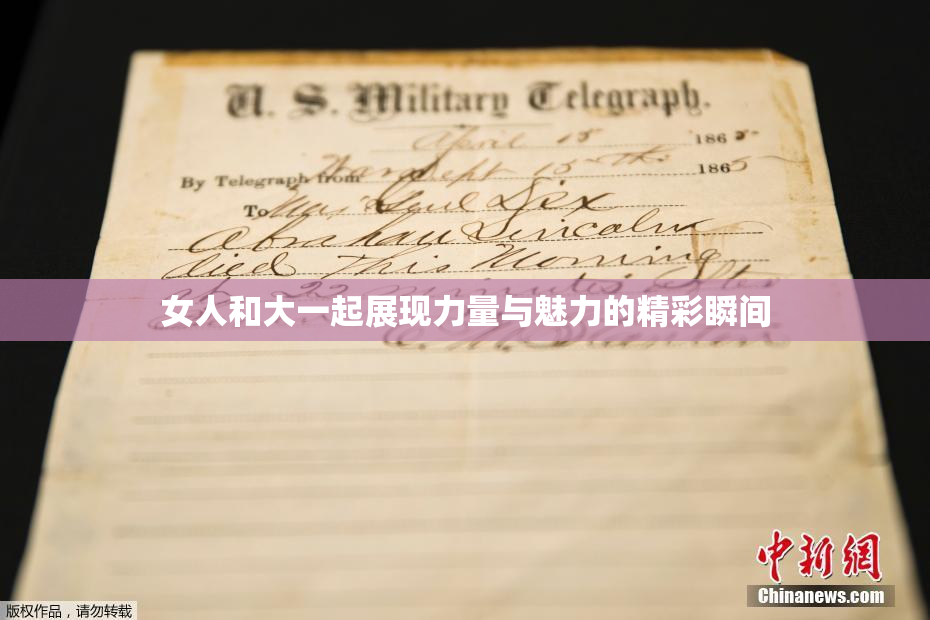 U. S. Military Telegraph.
April 15 1865
By Telegraph from War Dept 15th 1865
To Maj Genl Dix
Abraham Lincoln
died This Morning
at 22 minutes after
女人和大一起展现力量与魅力的精彩瞬间
E. M. Stanton
中新网
Chinanews.com
版权作品，请勿转载